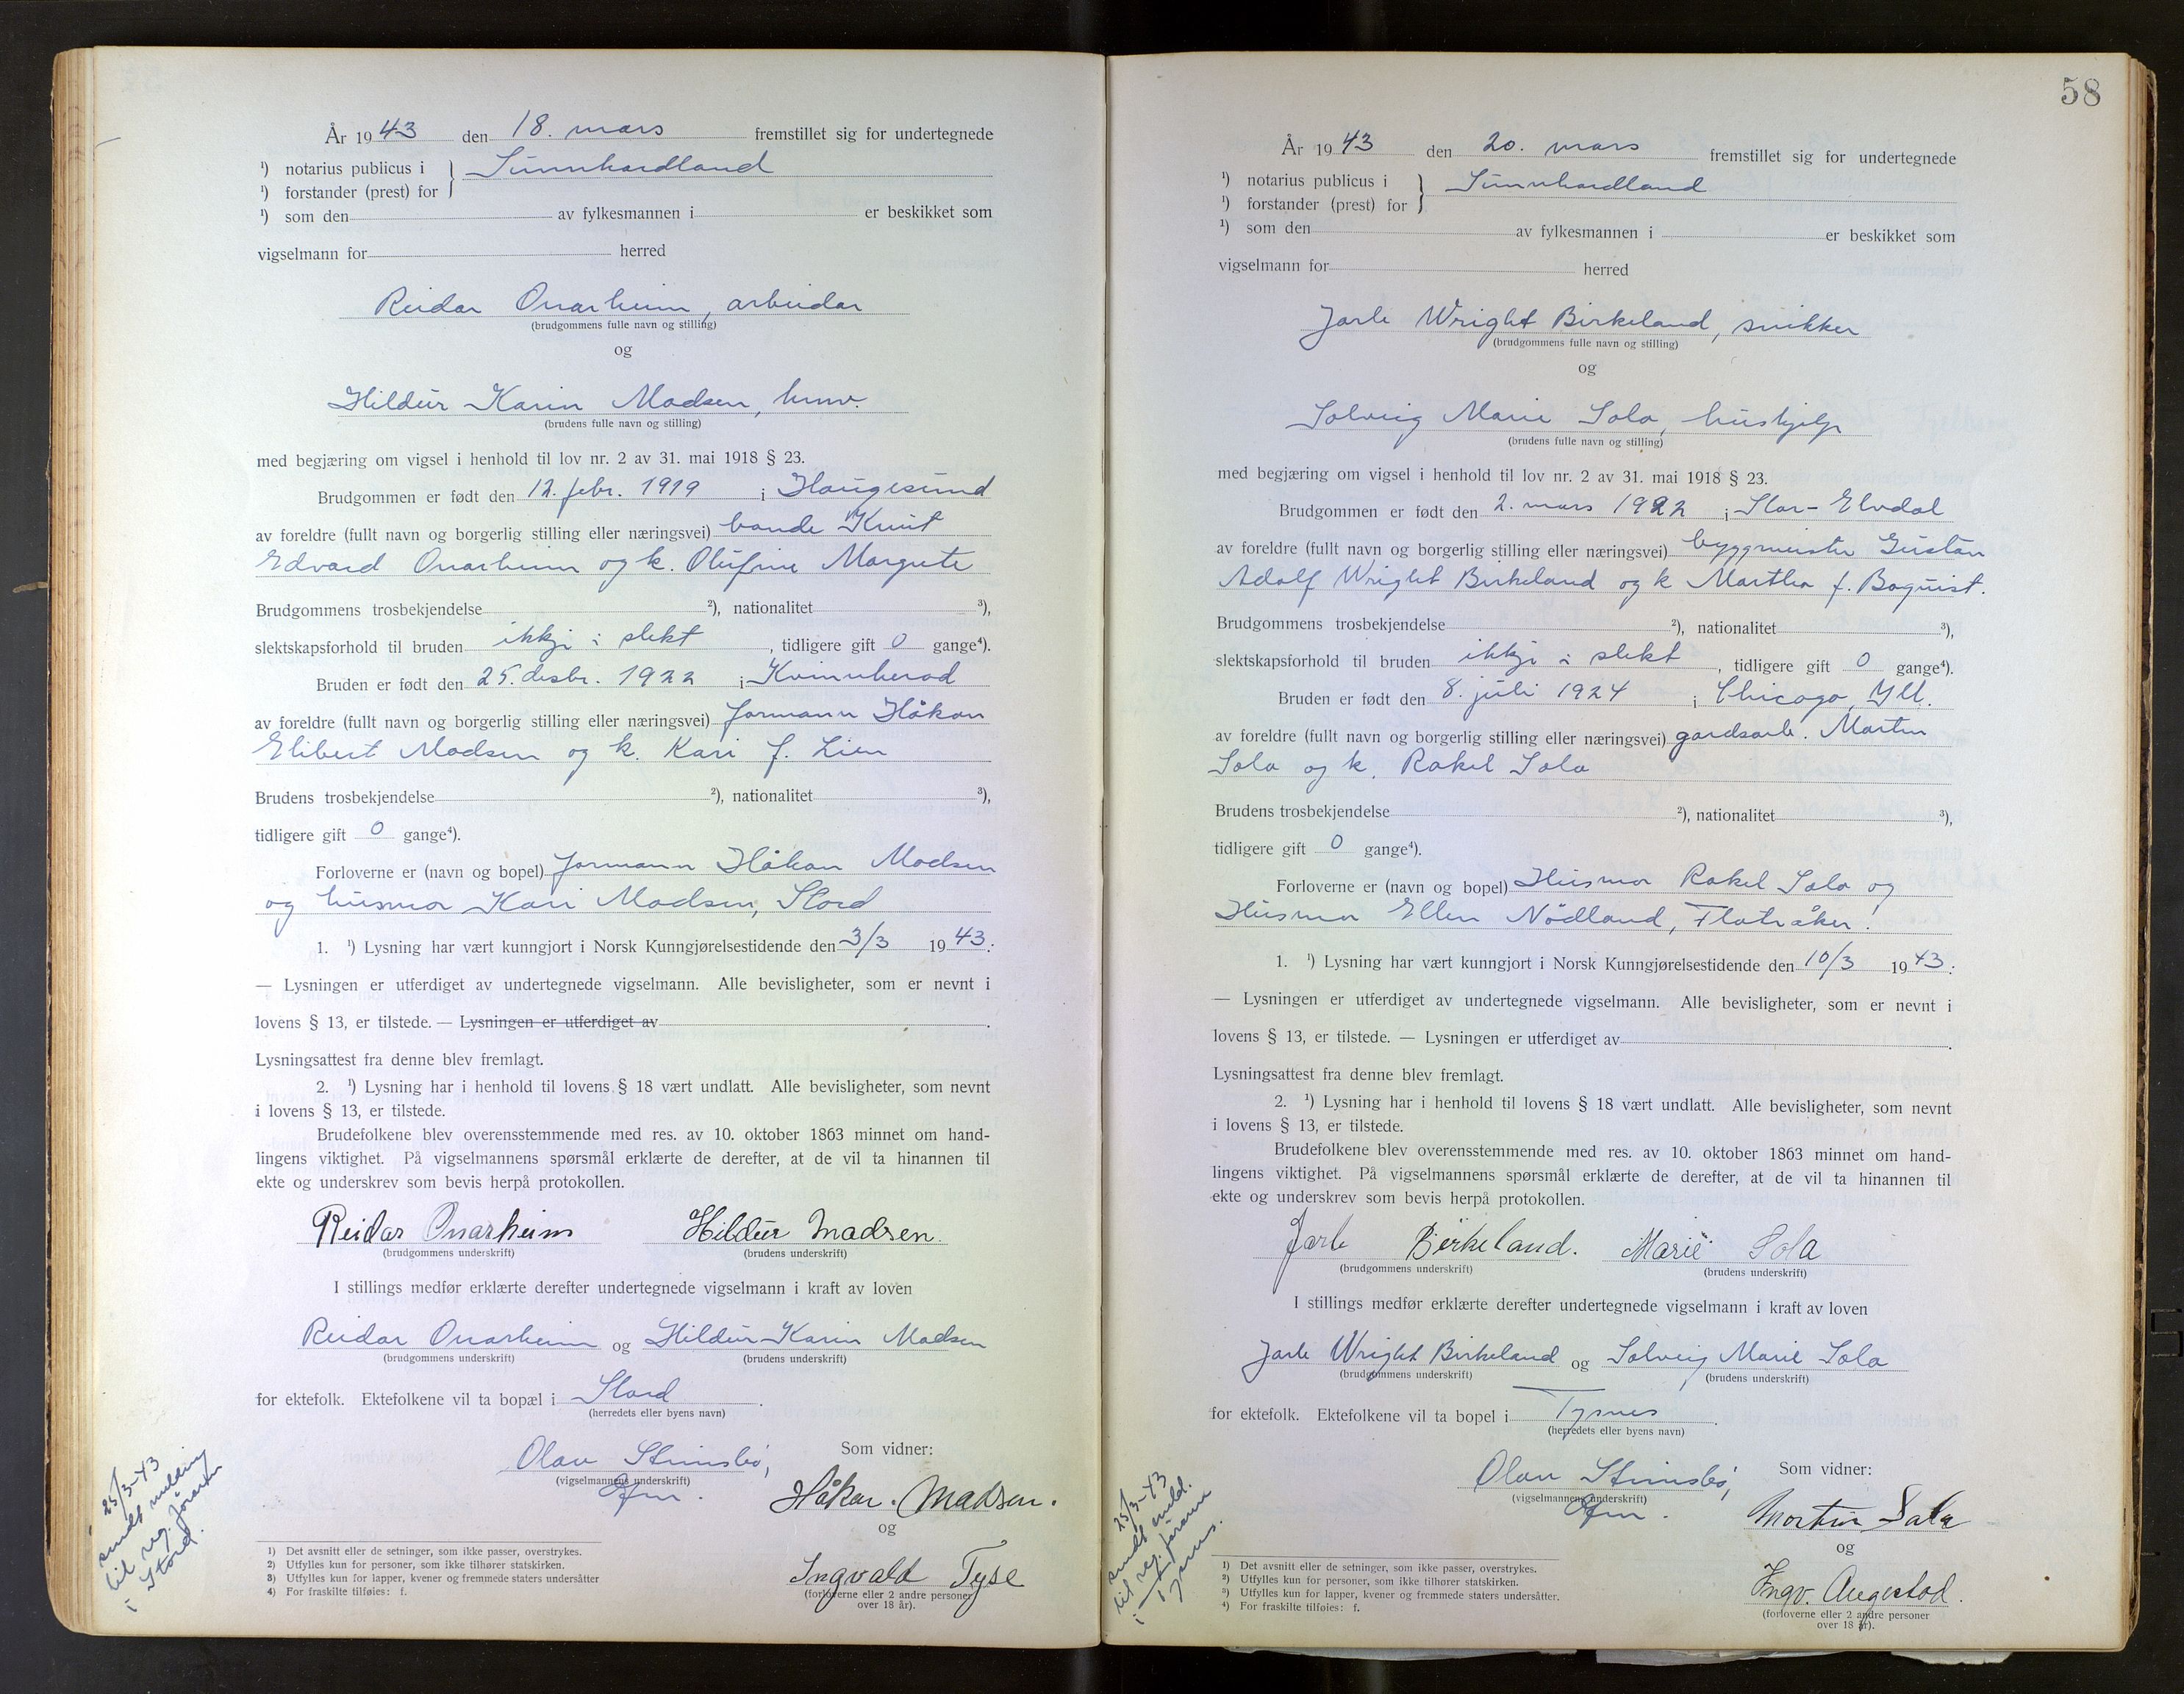 År 1943 den 18. mars fremstillet sig for undertegnede
¹) notarius publicus i } Sunnhordland
¹) forstander (prest) for
¹) som den av fylkesmannen i er beskikket som
vigselmann for herred
Reidar Onarheim, arbeidar
(brudgommens fulle navn og stilling)
og
Hildur Karin Madsen, husv.
(brudens fulle navn og stilling)
med begjæring om vigsel i henhold til lov nr. 2 av 31. mai 1918 § 23.
Brudgommen er født den 12. febr. 1919 i Haugesund
av foreldre (fullt navn og borgerlig stilling eller næringsvei) bonde Knut
Edvard Onarheim og k. Olufine Margrete
Brudgommens trosbekjendelse ²), nationalitet ³),
slektskapsforhold til bruden ikkje i slekt, tidligere gift 0 gange⁴).
Bruden er født den 25. desbr. 1922 i Kvinnherad
av foreldre (fullt navn og borgerlig stilling eller næringsvei) formann Håkon
Elibert Madsen og k. Kari f. Lien
Brudens trosbekjendelse ²), nationalitet ³),
tidligere gift 0 gange⁴).
Forloverne er (navn og bopel) formann Håkon Madsen
og husmor Kari Madsen, Stord
1. ¹) Lysning har vært kunngjort i Norsk Kunngjørelsestidende den 3/3 1943.:
— Lysningen er utferdiget av undertegnede vigselmann. Alle bevisligheter, som er nevnt i
lovens § 13, er tilstede. — Lysningen er utferdiget av .
Lysningsattest fra denne blev fremlagt.
2. ¹) Lysning har i henhold til lovens § 18 vært undlatt. Alle bevisligheter, som nevnt
i lovens § 13, er tilstede.
Brudefolkene blev overensstemmende med res. av 10. oktober 1863 minnet om hand-
lingens viktighet. På vigselmannens spørsmål erklærte de derefter, at de vil ta hinannen til
ekte og underskrev som bevis herpå protokollen.
Reidar Onarheim Hildur Madsen.
(brudgommens underskrift) (brudens underskrift)
I stillings medfør erklærte derefter undertegnede vigselmann i kraft av loven
Reidar Onarheim og Hildur Karin Madsen
(brudgommens underskrift) (brudens underskrift)
for ektefolk. Ektefolkene vil ta bopæl i Stord.
(herredets eller byens navn)
Olav Stensbø,
(vigselmannens underskrift)
Som vidner:
Håkon Madsen.
og
Ingvald Tyse
(forloverne eller 2 andre personer
over 18 år).
25/3-43
sendt melding
til reg. føraren
i Stord.
1) Det avsnitt eller de setninger, som ikke passer, overstrykes.
2) Utfylles kun for personer, som ikke tilhører statskirken.
3) Utfylles kun for lapper, kvener og fremmede staters undersåtter
4) For fraskilte tilføies: f.
58
År 1943 den 20. mars fremstillet sig for undertegnede
¹) notarius publicus i } Sunnhordland
¹) forstander (prest) for
¹) som den av fylkesmannen i er beskikket som
vigselmann for herred
Jarle Wright Birkeland, snikker
(brudgommens fulle navn og stilling)
og
Solveig Marie Sola, hushjelp
(brudens fulle navn og stilling)
med begjæring om vigsel i henhold til lov nr. 2 av 31. mai 1918 § 23.
Brudgommen er født den 2. mars 1922 i Stor-Elvdal
av foreldre (fullt navn og borgerlig stilling eller næringsvei) byggmeister Gustav
Adolf Wright Birkeland og k Martha f. Boquist.
Brudgommens trosbekjendelse ²), nationalitet ³),
slektskapsforhold til bruden ikkje i slekt, tidligere gift 0 gange⁴).
Bruden er født den 8. juli 1924 i Chicago, Ill.
av foreldre (fullt navn og borgerlig stilling eller næringsvei) gardsarb. Martin
Sola og k. Rakel Sola
Brudens trosbekjendelse ²), nationalitet ³),
tidligere gift 0 gange⁴).
Forloverne er (navn og bopel) Husmor Rakel Sola og
Husmor Ellen Nödland, Flatråker.
1. ¹) Lysning har vært kunngjort i Norsk Kunngjørelsestidende den 10/3 1943.:
— Lysningen er utferdiget av undertegnede vigselmann. Alle bevisligheter, som er nevnt i
lovens § 13, er tilstede. — Lysningen er utferdiget av .
Lysningsattest fra denne blev fremlagt.
2. ¹) Lysning har i henhold til lovens § 18 vært undlatt. Alle bevisligheter, som nevnt
i lovens § 13, er tilstede.
Brudefolkene blev overensstemmende med res. av 10. oktober 1863 minnet om hand-
lingens viktighet. På vigselmannens spørsmål erklærte de derefter, at de vil ta hinannen til
ekte og underskrev som bevis herpå protokollen.
Jarle Birkeland. Marie Sola
(brudgommens underskrift) (brudens underskrift)
I stillings medfør erklærte derefter undertegnede vigselmann i kraft av loven
Jarle Wright Birkeland og Solveig Marie Sola
(brudgommens underskrift) (brudens underskrift)
for ektefolk. Ektefolkene vil ta bopel i Tysnes.
(herredets eller byens navn)
Olav Stensbø,
(vigselmannens underskrift)
Som vidner:
Martin Sola
og
Ingv. Augestad.
(forloverne eller 2 andre personer
over 18 år).
25/3-43
sendt meld.
til reg. føraren
i Tysnes.
¹) Det avsnitt eller de setninger, som ikke passer, overstrykes.
²) Utfylles kun for personer, som ikke tilhører statskirken.
³) Utfylles kun for lapper, kvener og fremmede staters undersåtter.
⁴) For fraskilte tilføies: f.